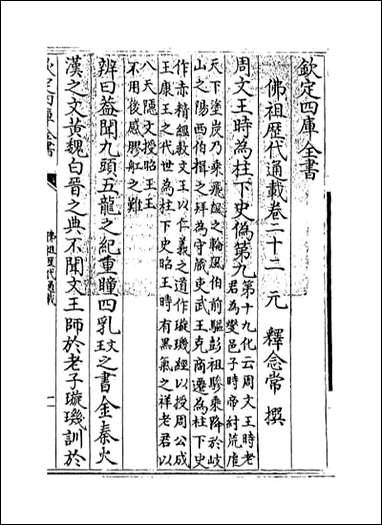 欽定四庫全書
佛祖歷代通載卷二十二 元 釋念常 撰
周文王時為柱下史偽第九
第十九化云周文王時老
君為爕邑子時帝紂荒虐
天下塗炭乃乘飛飊之輪風伯前驅彭祖驂乗降於岐
山之陽西伯揖之拜為守藏史武王克商遷為柱下史
作赤精經教文王以仁義之道作璇璣經以授周公成
王康王之代世為柱下史昭王時有黑氣之祥老君以
八天隱文授昭王王
不用後感膠舡之難
辨曰蓋聞九頭五龍之紀重瞳四乳文王之書金秦火
漢之文黃魏白晉之典不聞文王師於老子璇璣訓於
欽定四庫全書
佛祖歷代通載
一